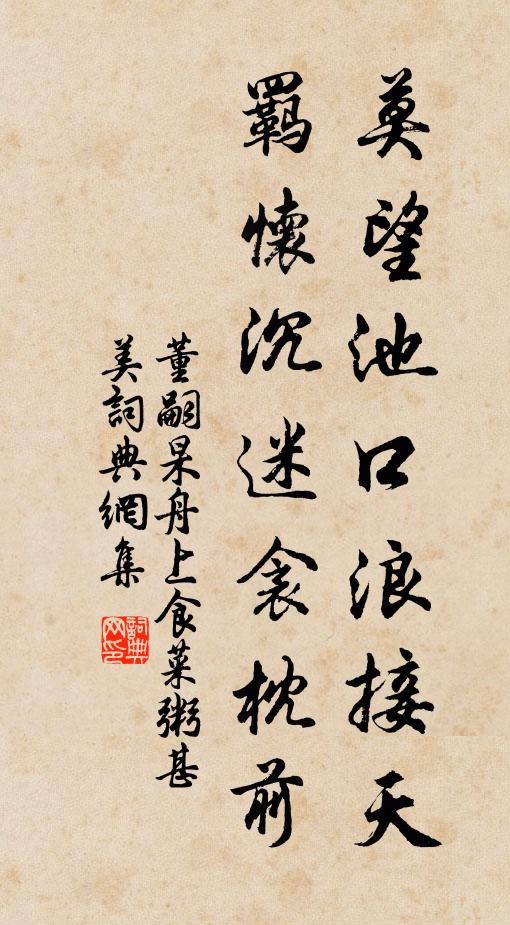 莫望池口浪接天
羈懷沉迷衾枕前
董嗣杲舟上食菜粥甚
美詞典網集
詞典
网印